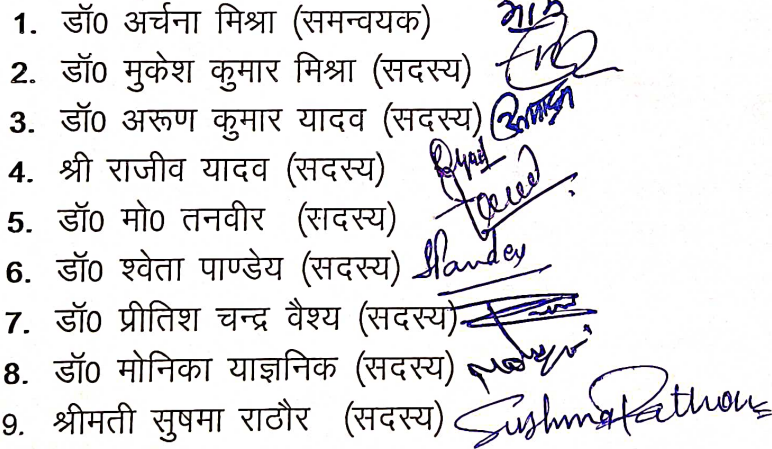 1. डॉ0 अर्चना मिश्रा (समन्वयक)
2. डॉ0 मुकेश कुमार मिश्रा (सदस्य)
3. डॉ0 अरूण कुमार यादव (सदस्य)
4. श्री राजीव यादव (सदस्य)
5. डॉ0 मो0 तनवीर (सदस्य)
6. डॉ0 श्वेता पाण्डेय (सदस्य) SPandey
7. डॉ0 प्रीतिश चन्द्र वैश्य (सदस्य)
8. डॉ0 मोनिका याज्ञनिक (सदस्य)
9. श्रीमती सुषमा राठौर (सदस्य) Sushma Rathour